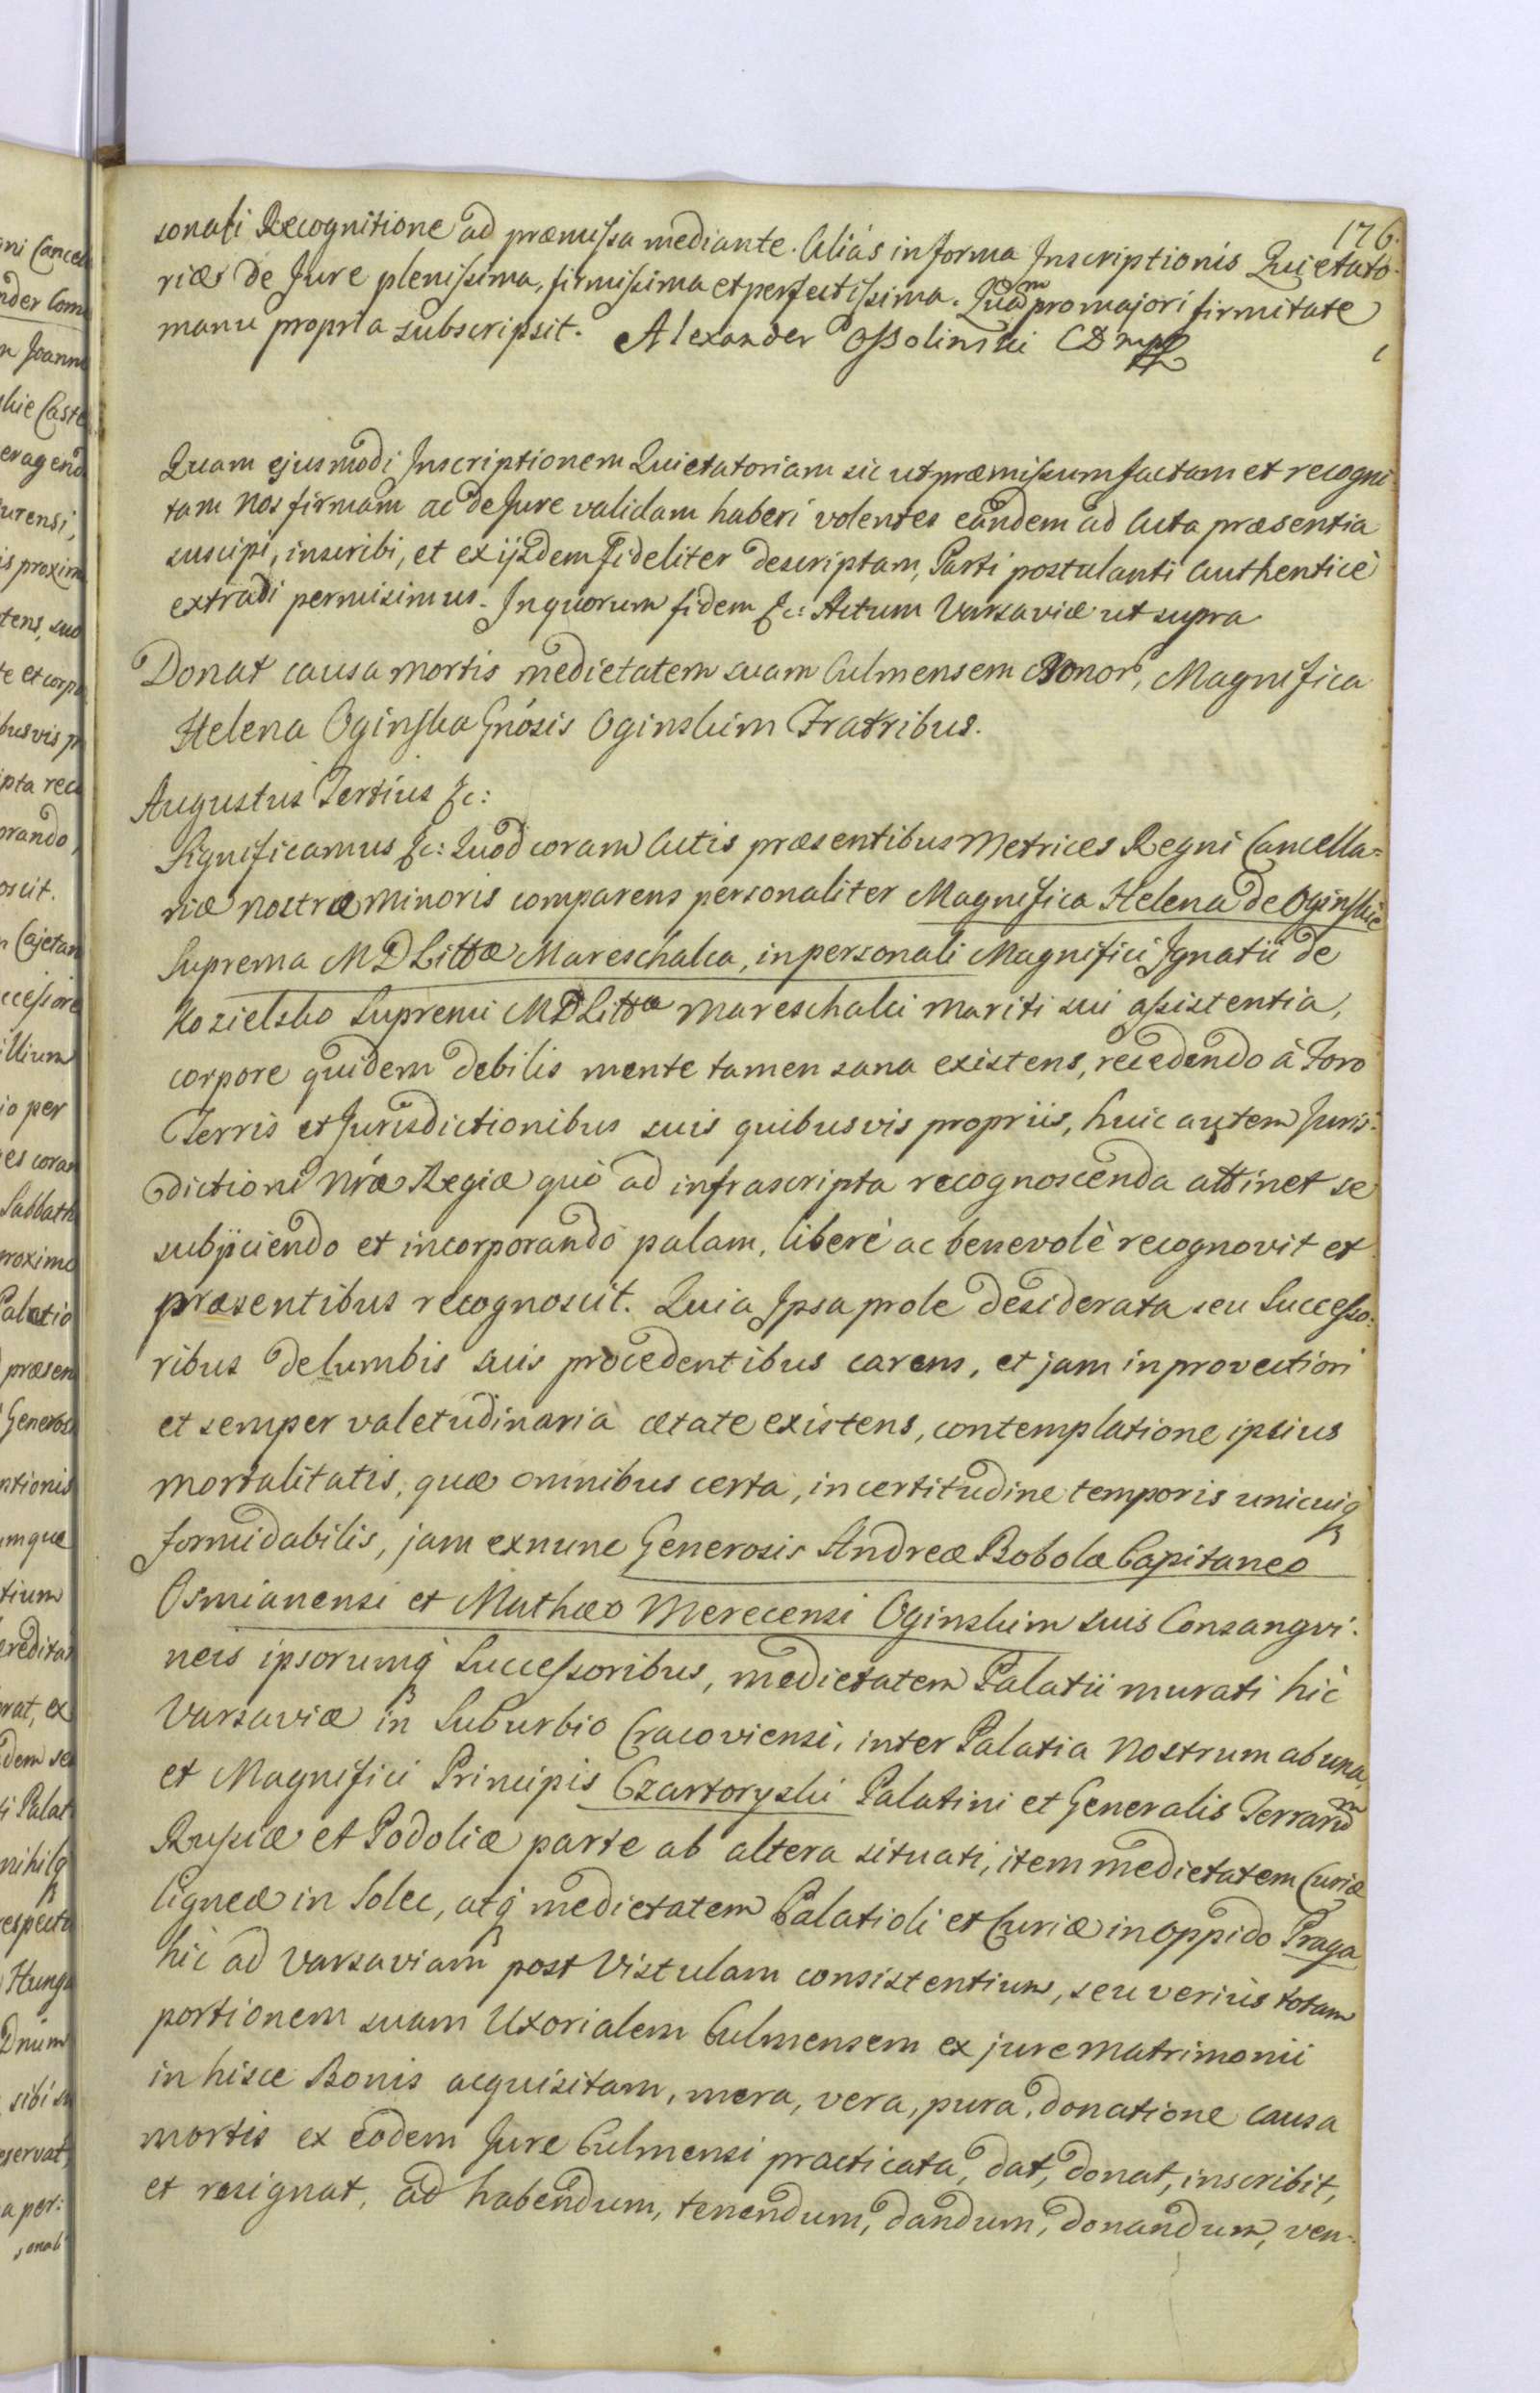 176.
sonali Recognitione ad præmissa mediante. Aliàs in forma Inscriptionis Quietato-
riæ de Jure plenissima, firmissima et perfectissima. Quam pro majori firmitate
manu propria subscripsit. Alexander Ossolinski CD mpp
Quam ejusmodi Inscriptionem Quietatoriam sic ut præmissum factam et recogni-
tam Nos firmam ac de Jure validam haberi volentes eandem ad Acta præsentia
suscipi, inscribi, et ex ijsdem fideliter descriptam, Parti postulanti Authenticè
extradi permisimus. In quorum fidem &c: Actum Varsaviæ ut supra
Donat causa mortis medietatem suam Culmensem Bonor, Magnifica
Helena Oginska Gnósis Oginskim Fratribus.
Augustus Tertius &c:
Significamus &c: Quod coram Actis præsentibus Metrices Regni Cancella=
riæ nostræ Minoris comparens personaliter Magnifica Helena de Oginskie
Suprema MDLittæ Mareschalca, in personali Magnifici Ignatii de
Kozielsko Supremi MDLittæ Mareschalci Mariti sui assistentia,
corpore quidem debilis mente tamen sana existens, recedendo à Foro
Terris et Jurisdictionibus suis quibusvis propriis, huic autem Juris-
dictioni Nræ Regiæ quò ad infrascripta recognoscenda attinet se
subjiciendo et incorporando palam, liberè ac benevolè recognovit et
præsentibus recognoscit. Quia Ipsa prole desiderata seu Successo-
ribus de lumbis suis procedentibus carens, et jam in provectiori
et semper valetudinaria ætate existens, contemplatione ipsius
mortalitatis, quæ omnibus certa, incertitudine temporis unicuiq
formidabilis, jam exnunc Generosis Andreæ Bobola Capitaneo
Osmianensi et Mathæo Merecensi Oginskim suis Consangvi-
neis ipsorumq Successoribus, medietatem Palatii murati hic
Varsaviæ in Suburbio Cracoviensi, inter Palatia Nostrum ab una,
et Magnifici Principis Czartoryski Palatini et Generalis Terrarum
Russiæ et Podoliæ parte ab altera situati, item medietatem Curiæ
ligneæ in Solec, atq medietatem Palatioli et Curiæ in oppido Praga
hic ad Varsaviam post Vistulam consistentium, seu veriùs totam
portionem suam Uxorialem Culmensem ex jure Matrimonii
in hisce Bonis acquisitam, mera, vera, pura, donatione causa
mortis ex eodem Jure Culmensi practicata, dat, donat, inscribit,
et resignat, ad habendum, tenendum, dandum, donandum, ven-